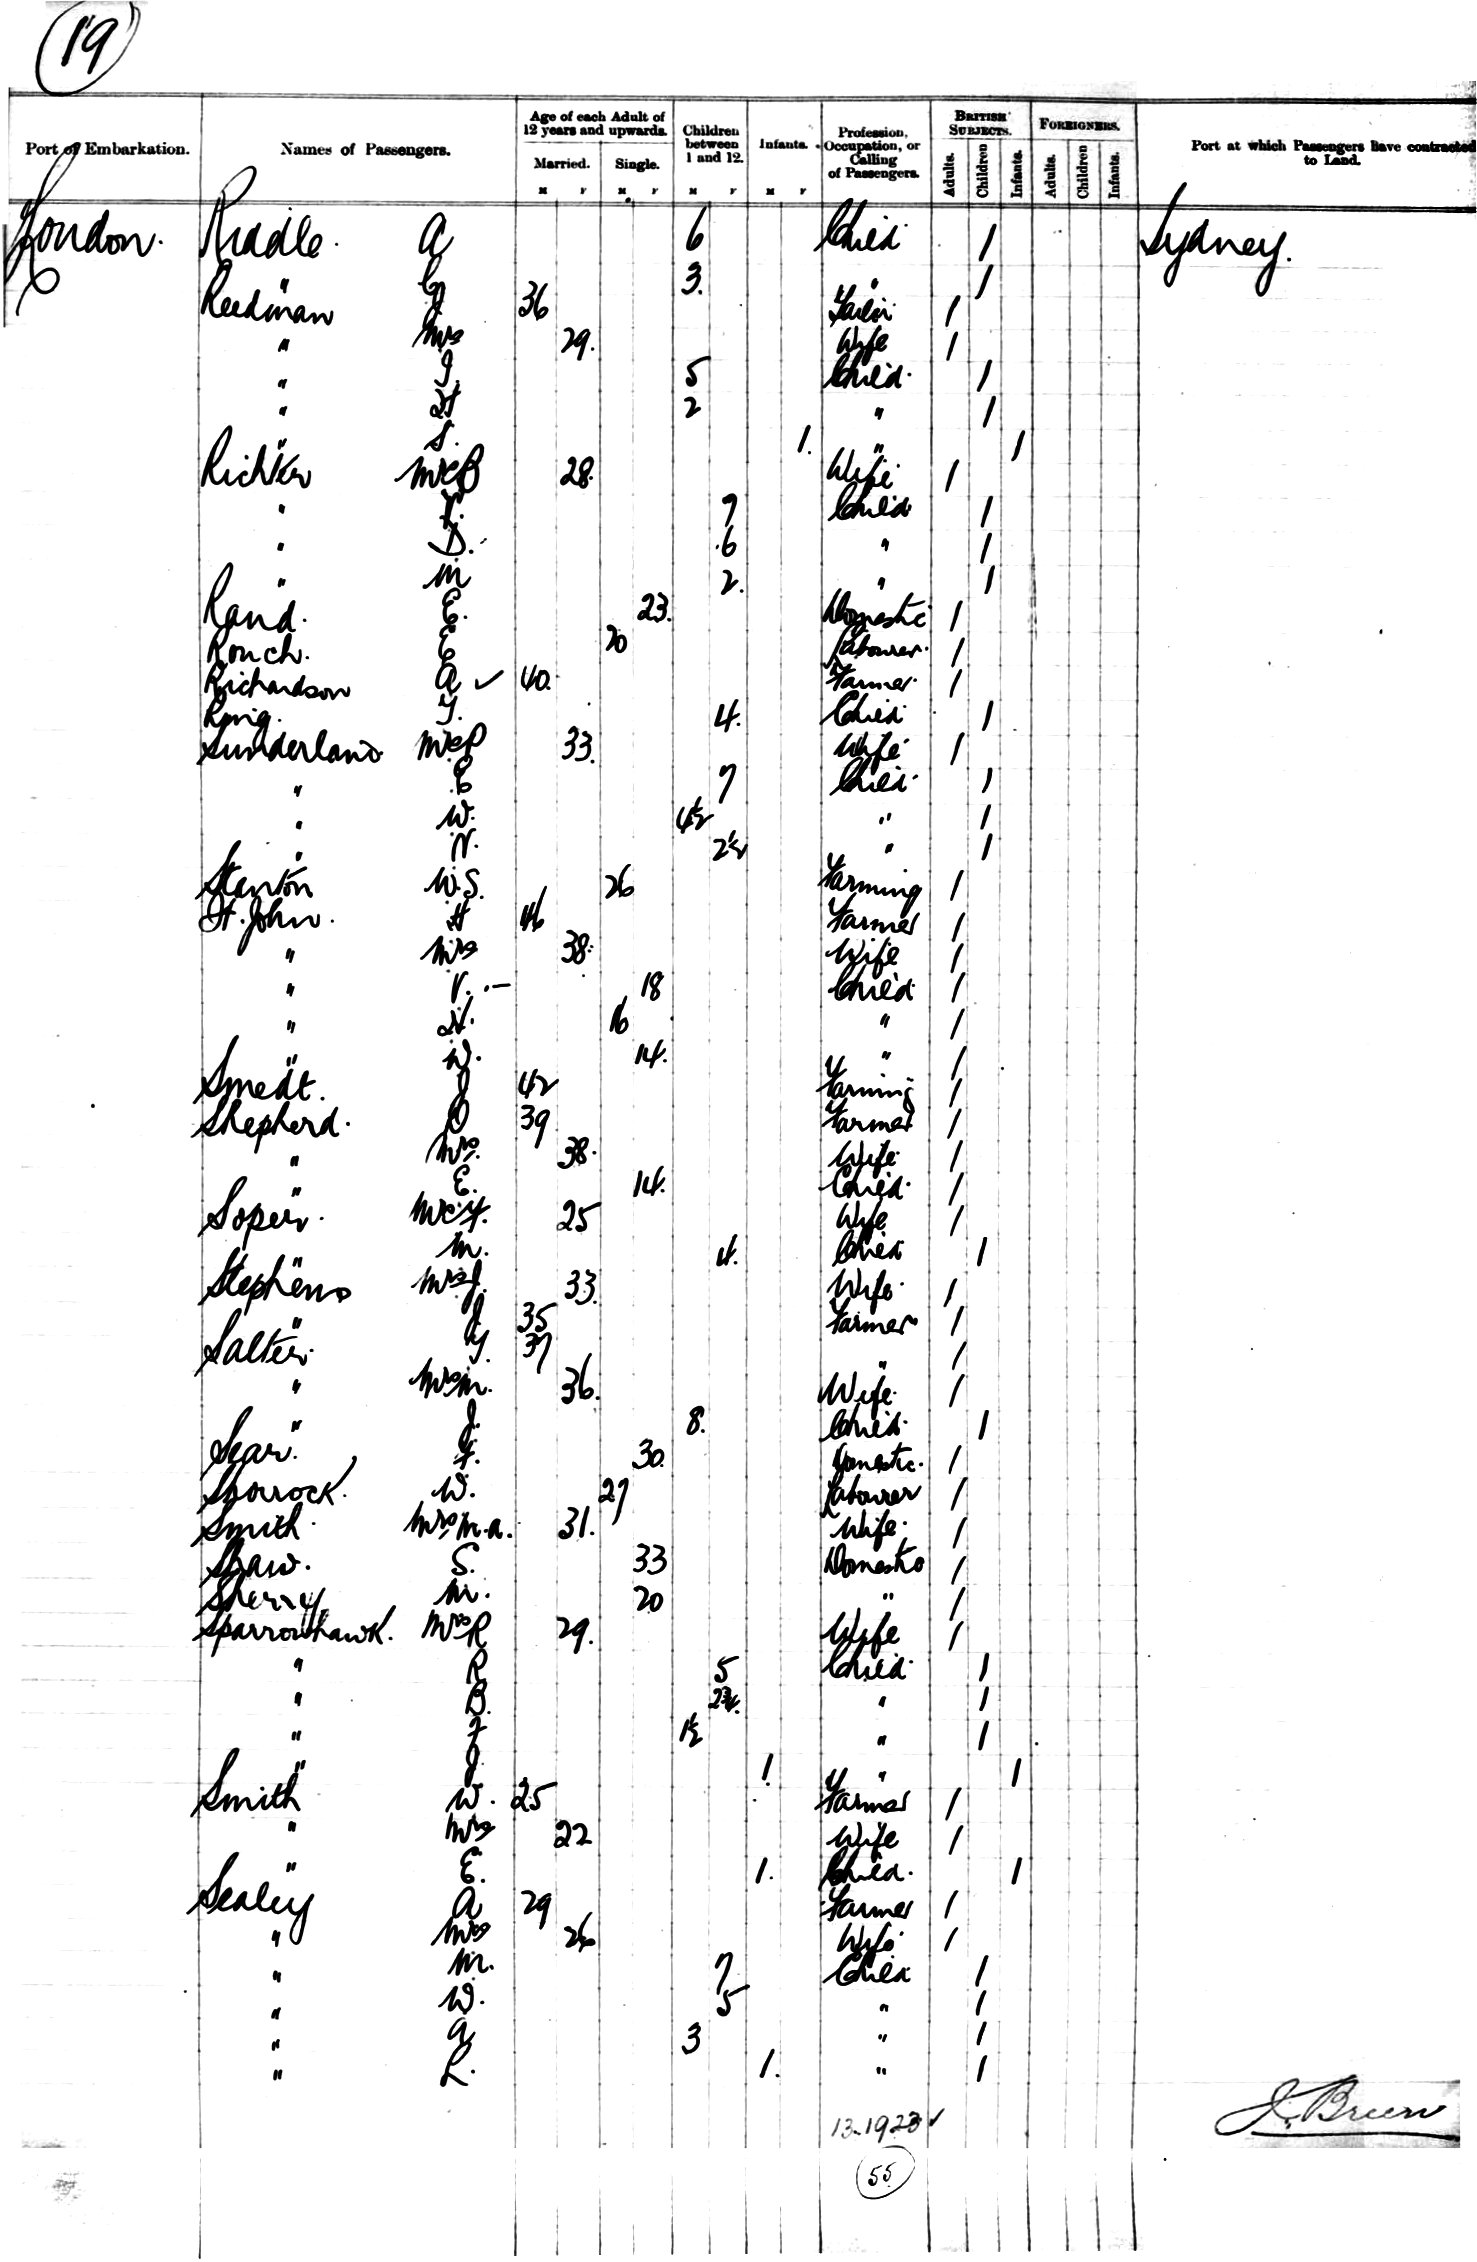 19
Port of Embarkation. Names of Passengers. Age of each Adult of 12 years and upwards. Children between 1 and 12. Infants. Profession, Occupation, or Calling of Passengers. BRITISH SUBJECTS. FOREIGNERS. Port at which Passengers have contracted to Land.
Married. Single. Adults. Children Infants. Adults. Children Infants.
M F M F M F M F
London. Riddle. A 6 Child 1 Sydney.
" G 3. " 1
Reedman J 36 Tailor 1
" Mrs 29. Wife 1
" J. 5 Child. 1
" H 2 " 1
" S. 1. " 1
Richter Mrs B 28. Wife 1
" 7 Child 1
" D. 6 " 1
" M 2. " 1
Rand. E. 23. Domestic 1
Ronch. E 20 Labourer. 1
Richardson A ✓ 40. Farmer. 1
Ring. Y. 4. Child 1
Sunderland Mrs P 33. Wife 1
" E 7 Child. 1
" W. 4½ " 1
" N. 2½ " 1
Stanton W.S. 26 Farming 1
St. John. H 46 Farmer 1
" Mrs 38. Wife 1
" V. 18 Child 1
" H. 16 " 1
" W. 14. " 1
Smedt. J 42 Farming 1
Shepherd. O 39 Farmer 1
" Mrs. 38. Wife 1
" E. 14. Child. 1
Soper. Mrs F. 25 Wife 1
" M. 4. Child 1
Stephens Mrs J. 33. Wife. 1
" J. 35 Farmer 1
Salter. G. 37 " 1
" Mrs M. 36. Wife. 1
" J. 8. Child. 1
Sear. F. 30. Domestic. 1
Shorrock. W. 27 Labourer 1
Smith. Mrs M.A. 31. Wife. 1
Shaw. S. 33 Domestic 1
Sherry. M. 20 " 1
Sparrowhawk. Mrs R 29. Wife 1
" R 5 Child. 1
" B. 2¾. " 1
" F 1½ " 1
" J. 1. " 1
Smith W. 25 Farmer 1
" Mrs 22 Wife 1
" E. 1. Child. 1
Sealey A 29 Farmer 1
" Mrs 26 Wife 1
" M. 7 Child 1
" W. 5 " 1
" A 3 " 1
" R. 1. " 1
13.1923 ✓
J. Breen
55